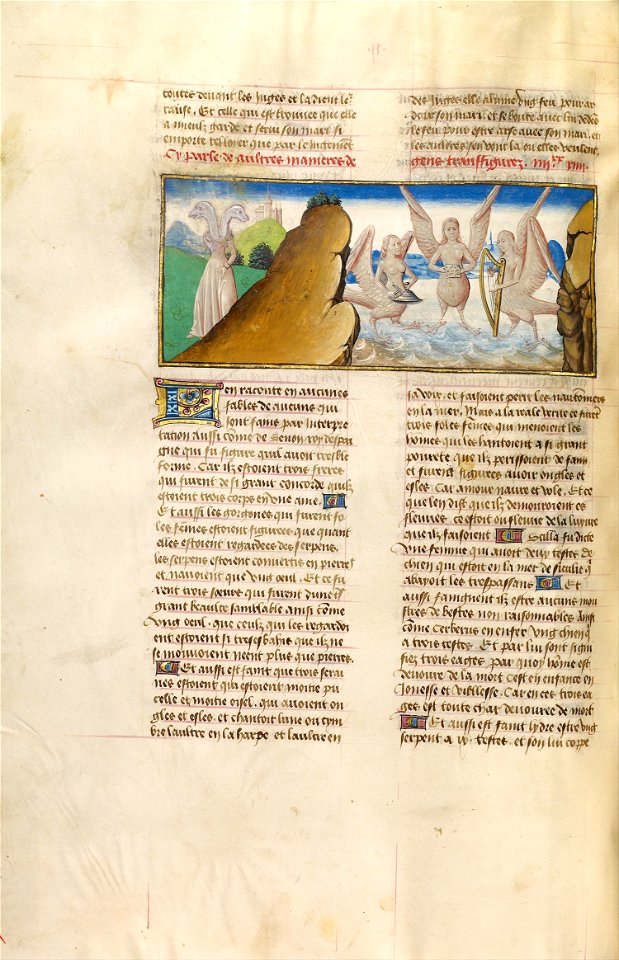 toutes devant les Juges et la dient le²
cause. Et celle qui est trouuee que elle
a mieulx garde et serui son mari si
emporte
Cy parle de aultres manieres de
des Juges elle alume vng feu pour ar
doir son mari. et se boute avec lui dedẽs
le feu pour estre arse avec son mari. et
les aultres sen vont la ou elles veulent.
gens transfigurez. iiijxx. xiij.
Len raconte en aucunes
fables de aucuns qui
sont fains par interpre
tation aussi cõme de roy despai
gne qui fu figure quil auoit treble
forme. Car ilz estoient trois freres
qui furent de si grant concorde quilz
estoient trois corps en vne ame.
Et aussi les gorgones qui furent fo
les fẽmes estoient figurees que quant
elles estoient regardees des serpens.
les serpens estoient conuertis en pierres
et nauoient que vng oeul. Et ce fu
rent trois sœurs qui furent dune si
grant beaulte samblable ainsi cõme
vng oeul. que ceulx qui les regardoi
ent estoient si tresesbahis que ilz ne
se mouuoient neent plus que pierres.
Et aussi est faint que trois serai
nes estoient qui estoient moitie pu
celle et moitie oisel. qui auoient on
gles et esles. et chantoit lune ou tym
bre laultre en la harpe et laultre en
sa voix. et faisoient perir les nautonniers
en la mer. Mais a la vraie verite ce furẽt
trois foles fẽmes qui menoient les
hõmes qui les hantoient a si grant
pourete que ilz perissoient de faim
et furent figurees auoir ongles et
esles. Car amour naure et vole. Et ce
que len dist que elz demouroient es
fleuues. ce estoit ou fleuue de la luxure
que ilz faisoient Scilla fu dicte
vne femme qui auoit deux testes de
chien qui estoit en la mer de sicilie q̃
abayoit les trespassans Et
aussi faingnient ilz estre aucuns mon
stres de bestes non raisonnables ainsi
cõme Cerberus en enfer vng chien q̃
a trois testes. Et par lui sont signi
fiez trois eages par quoy hõme est
deuoure de la mort cest en enfance en
Jonesse et vieillesse. Car en ces trois ea
ges est toute char deuouree de mort
Et aussi est faint lydre estre vng
serpent a ix. testes. et son lui coppe